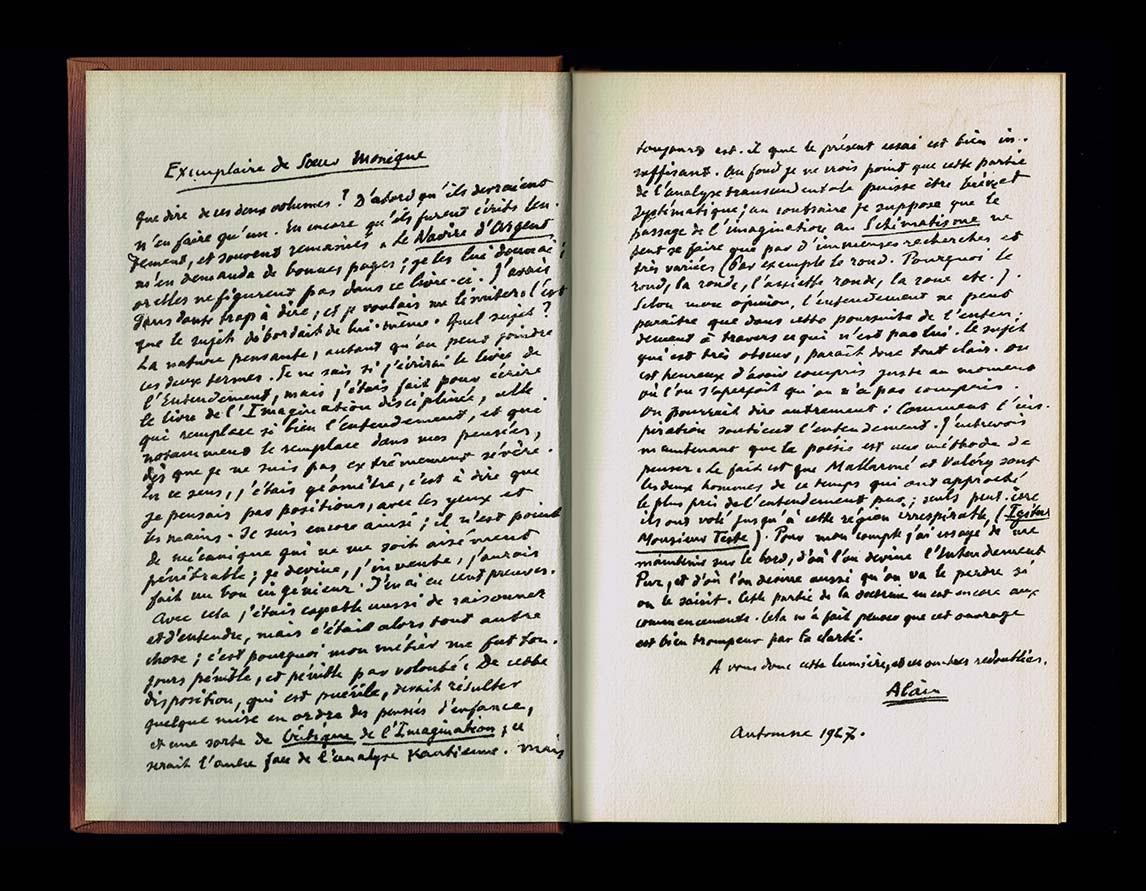 Exemplaire de Sœur Monique
Que dire de ces deux volumes ? D'abord qu'ils devraient
n'en faire qu'un. En encore qu'ils furent écrits len-
tement, et souvent remaniés. Le Navire d'Argent
m'en demanda de bonnes pages ; je les lui donnai ;
or elles ne figurent pas dans ce livre-ci. J'avais
sans doute trop à dire ; et je voulais me limiter. C'est
que le sujet débordait de lui-même. Quel sujet ?
La nature pensante, autant qu'on peut joindre
ces deux termes. Je ne sais si j'écrirai le livre de
l'Entendement, mais j'étais fait pour écrire
le livre de l'Imagination disciplinée, celle
qui remplace si bien l'entendement, et qui
notamment le remplace dans mes pensées,
dès que je ne suis pas extrêmement sévère.
En ce sens, j'étais géomètre, c'est à dire que
je pensais par positions, avec les yeux et
les mains. Je suis encore ainsi ; il n'est point
de mécanique qui ne me soit aisément
pénétrable ; je devine, j'invente, j'aurais
fait un bon ingénieur. J'en ai eu cent preuves.
Avec cela j'étais capable aussi de raisonner
et d'entendre, mais c'était alors tout autre
chose ; c'est pourquoi mon métier me fut tou-
jours pénible, et pénible par volonté. De cette
disposition, qui est puérile, devait résulter
quelque mise en ordre des pensées d'enfance,
et une sorte de Critique de l'Imagination ; ce
serait l'autre face de l'analyse Kantienne. Mais
toujours est-il que le présent essai est bien in-
suffisant. Au fond je ne crois point que cette partie
de l'analyse transcendentale puisse être brève et
systématique ; au contraire je suppose que le
passage de l'imagination au Schématisme ne
peut se faire que par d'immenses recherches et
très variées (Par exemple le rond. Pourquoi le
rond, la ronde, l'assiette ronde, la roue etc.).
Selon mon opinion, l'entendement ne peut
paraître que dans cette poursuite de l'enten-
dement à travers ce qui n'est pas lui. Le sujet
qui est très obscur, paraît donc tout clair. On
est heureux d'avoir compris juste au moment
où l'on s'aperçoit qu'on n'a pas compris.
On pourrait dire autrement : Comment l'ins-
piration soutient l'entendement. J'entrevois
maintenant que la poésie est une méthode de
penser. Le fait est que Mallarmé et Valéry sont
les deux hommes de ce temps qui ont approché
le plus près de l'entendement pur ; seuls peut-être
ils ont volé jusqu'à cette région irrespirable, (Igitur
Monsieur Teste). Pour mon compte j'ai essayé de me
maintenir sur le bord, d'où l'on devine l'Entendement
Pur, et d'où l'on devine aussi qu'on va le perdre si
on le saisit. Cette partie de la doctrine en est encore aux
commencements. Cela m'a fait penser que cet ouvrage
est bien trompeur par la clarté.
A vous donc cette lumière, et ces ombres redoublées.
Alain
Automne 1927.